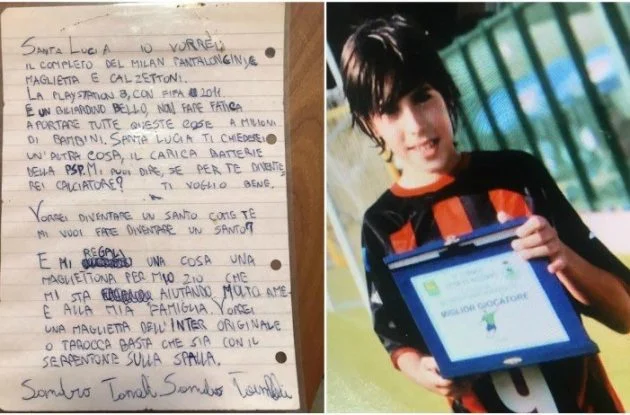 SANTA LUCIA IO VORREI
IL COMPLETO DEL MILAN PANTALONCINI, E
MAGLIETTA E CALZETTONI.
LA PLAYSTATION 3, CON FIFA 2011.
E UN BILIARDINO BELLO, NON FARE FATICA
A PORTARE TUTTE QUESTE COSE A MILIONI
DI BAMBINI. SANTA LUCIA TI CHIEDEREI
UN'ALTRA COSA, IL CARICA BATTERIE
DELLA PSP. MI PUOI DIRE, SE PER TE DIVENTE
REI CALCIATORE? TI VOGLIO BENE.
VORREI DIVENTARE UN SANTO COME TE
MI VUOI FARE DIVENTARE UN SANTO?
E MI REGALI UNA COSA UNA
MAGLIETTONA PER MIO ZIO CHE
MI STA AIUTANDO MOLTO A ME
E ALLA MIA FAMIGLIA. VORREI
UNA MAGLIETTA DELL'INTER ORIGINALE
O TAROCCA BASTA CHE SIA CON IL
SERPENTONE SULLA SPALLA.
Sandro Tonali Sandro Tonali
MIGLIOR GIOCATORE